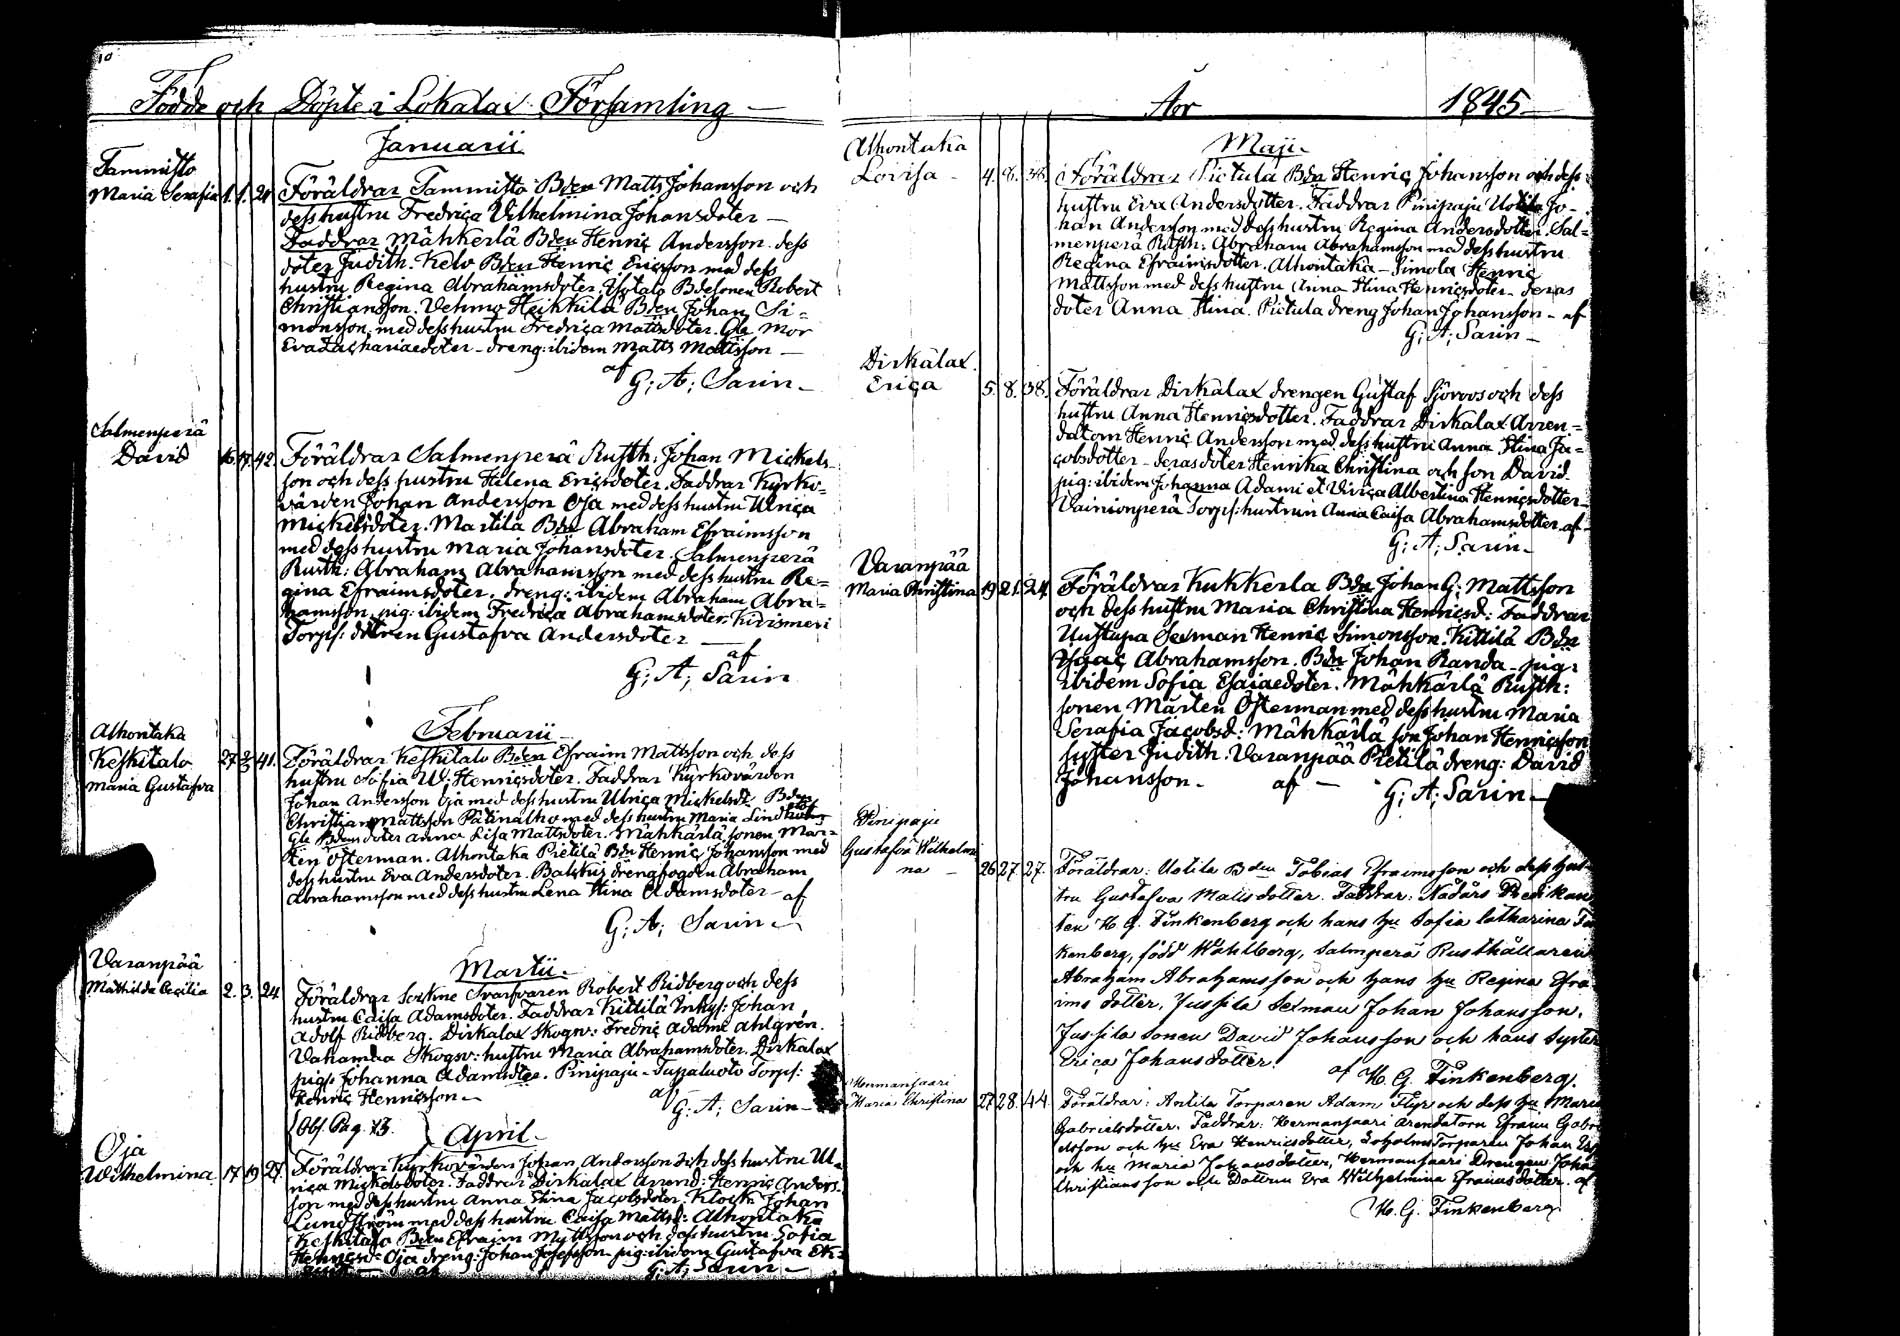 10
Födde och Döpte i Lokalax Församling
Januarii
Tammisto
Maria Serafia 1. 1. 24 Föräldrar Tammisto Bden Matts Johansson och
dess hustru Fredrica Vilhelmina Johansdoter
Faddrar Mähkerlä Bden Henric Andersson dess
doter Judith. Kelo Bden Henric Ericsson med dess
hustru Regina Abrahamsdoter, Bdesonen Robert
Christiansson. Vehmo Heikkilä Bden Johan Si=
monsson, med dess hustru Fredrica Mattsdoter. Gla Mor
Eva Zachariaedoter dreng: ibidem Matts Mattsson
af
G; A; Sarin
Salmenperä
David 16. 17. 42. Föräldrar Salmenperä Rusth: Johan Mickels
son och dess hustru Helena Ericsdoter. Faddrar Kyrko=
värden Johan Andersson Oja med dess hustru Ulrica
Mickelsdoter. Martila Bden Abraham Efraimsson
med dess hustru Maria Johansdoter. Salmenperä
Rusth: Abraham Abrahamsson med dess hustru Re=
gina Efraimsdoter, dreng: ibidem Abraham Abra=
hamsson, pig: ibidem Fredrica Abrahamsdoter. Kirismeri
Torps: dotren Gustafva Andersdoter
af
G; A; Sarin
Februarii
Alhontaka
Keskitalo 27 2/3 41. Föräldrar Keskitalo Bden Efraim Mattsson och dess
Maria Gustafva
hustru Sofia Ul: Henricsdoter. Faddrar Kyrkovärden
Johan Andersson Oja med dess hustru Ulrica Mickelsdr Bden
Christian Mattsson Patinalho med dess hustru Maria Lind
Gle Bdens doter Anna Lisa Mattsdoter. Mähkärlä sonen Mår=
ten Österman. Alhontaka Pietilä Bden Henric Johansson med
dess hustru Eva Andersdoter. drengfogden Abraham
Abrahamsson med dess hustru Lena Stina Adamsdoter af
G; A; Sarin
Martii
Varanpää
Mathilda Cecilia 2. 3. 24 Föräldrar Sockne Svarfvaren Robert Ridberg och dess
hustru Caisa Adamsdoter. Faddrar Kittilä Inhys: Johan
Adolf Ridberg. Dirkalax Skogv: Fredric Adami Ahlgrén.
Vahamaa Skogv: hustru Maria Abrahamsdoter. Dirkalax
pig: Johanna Adamsdter. Pinipaju Tuppaluoto Torps:
Henric Henricsson
af
G; A; Sarin
Obs. Pag. 13.
April
Oja
Wilhelmina. 17 19 27. Föräldrar Kyrkovärden Johan Andersson och dess hustru Ul
rica Mickelsdoter. Faddrar Dirkalax Arrend: Henric Anders
son med dess hustru Anna Stina Jacobsdoter. Klock: Johan
Lundström med dess hustru Caisa Mattsd: Alhontaka
Keskitalo Bden Efraim Mattsson och dess hustru Sofia
Henricsd: Oja dreng: Johan Josefsson pig: ibidem Gustafva
af G; A; Sarin
År 1845
Maji
Alhontaka
Lovisa 4. 8. 38. Föräldrar Pietula Bden Henric Johansson och dess
hustru Eva Andersdotter. Faddrar Pinipaju Uotila Jo=
han Andersson med dess hustru Regina Andersdotter. Sal=
menperä Rusth: Abraham Abrahamsson med dess hustru
Regina Efraimsdotter. Alhontaka Simola Henric
Mattsson med dess hustru Anna Stina Henricsdoter deras
doter Anna Stina. Pietula dreng Johan Johansson af
G; A; Sarin
Dirkalax
Erica 5. 8. 38. Föräldrar Dirkalax drengen Gustaf Sjöroos och dess
hustru Anna Henricsdotter. Faddrar Dirkalax Arren=
datorn Henric Andersson med dess hustru Anna Stina Ja=
cobsdotter deras doter Henrika Christina och son David
pig: ibidem Johanna Adami et Vivica Albertina Henricsdotter
Vainionperä Torps: hustrun Anna Caisa Abrahamsdotter af
G; A; Sarin
Varanpää
Maria Christina 19 21. 24. Föräldrar Kukkerla Bden Johan G: Mattsson
och dess hustru Maria Christina Henricsd: Faddrar
Uustupa Sexman Henric Simonsson. Kittilä Bden
Isaac Abrahamsson. Bden Johan Randa pig:
ibidem Sofia Esaiaedoter. Mähkärlä Rusth:
sonen Mårten Österman med dess hustru Maria
Serafia Jacobsd: Mähkärlä son Johan Henricsson
syster Judith. Varanpää Pietilä dreng: David
Johansson. af
G; A; Sarin
Pinipaju
Gustafva Wilhelmi
na 26 27. 27. Föräldrar: Uotila Bden Tobias Efraimsson och dess hus
tru Gustafva Matts dotter. Faddrar: Nådårs Predikan
ten H. G. Finkenberg och hans hu Sofia Catharina Fin
kenberg, född Wahlberg, Salmperä Rusthållaren
Abraham Abrahamsson och hans hu Regina Efra
ims dotter, Jussila Sexman Johan Johansson,
Jussila sonen David Johansson och hans syster
Erica Johans dotter.
af H. G. Finkenberg.
Hermansaari
Maria Christina 27 28. 44. Föräldrar: Anttila Torparen Adam Flyt och dess hu Maria
Gabrielsdotter. Faddrar: Hermansaari arendatorn Efraim Gabri
elsson och hu Eva Henricsdotter, Torparen Johan
och hu Maria Johansdotter, Hermansaari Drengen Johan
Christiansson och Dottren Eva Wilhelmina Efraimsdotter. af
H. G. Finkenberg